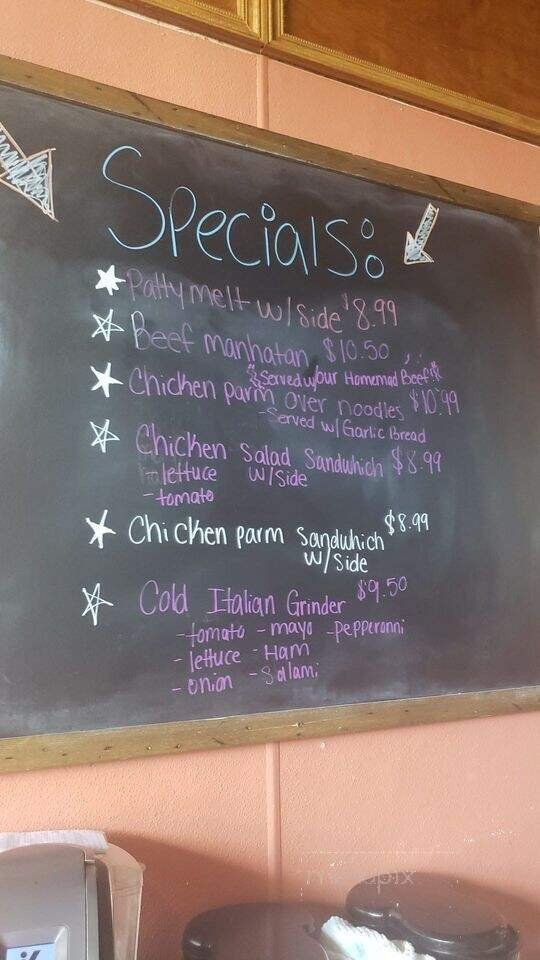 Specials:
Patty melt w/side $8.99
Beef manhatan $10.50
"Served w/our Homemad Beef"
Chicken parm over noodles $10.99
-Served w/ Garlic Bread
Chicken Salad Sandwhich $8.99
-lettuce w/side
-tomato
Chicken parm Sanduhich $8.99
w/side
Cold Italian Grinder $9.50
-tomato -mayo -pepperonni
-lettuce -Ham
-onion -Salami